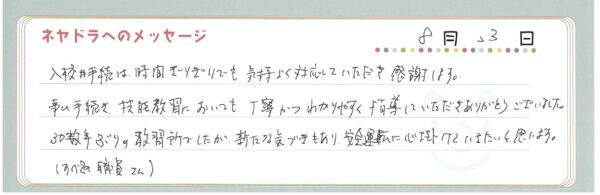 ネヤドラへのメッセージ
8月23日
入校手続は、時間ぎりぎりでも気持よく対応していただき感謝します。
事ム手続き、技能教習においても丁寧かつわかりやすく指導していただきありがとうございました。
30数年ぶりの教習所でしたが、新たな気づきもあり、安全運転に心掛けていきたいと思います。
職員さん)